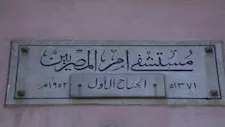 مستشفى أم المصريين
١٣٧١هـ الجناح الأول ١٩٥٢م